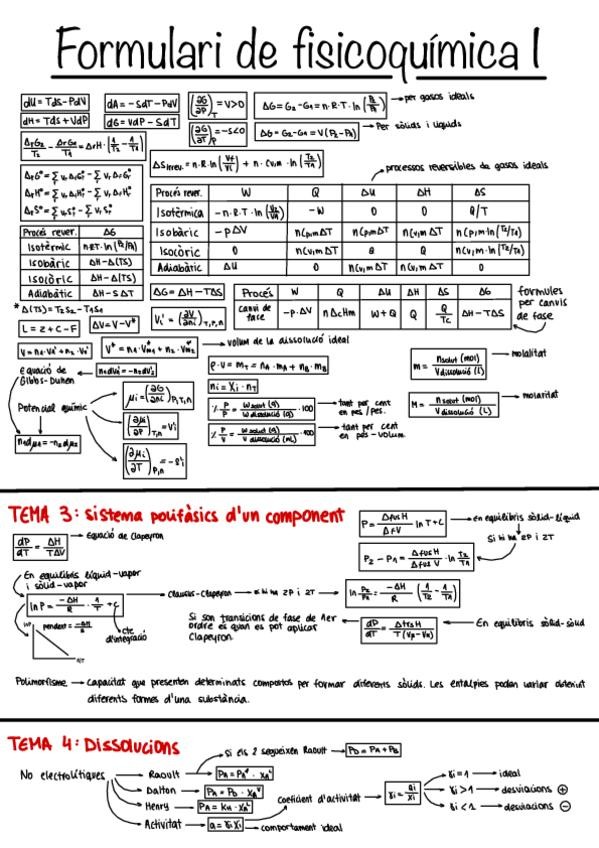 Formulari de fisicoquímica I
dU = TdS - PdV
dA = -SdT - PdV
(∂G/∂P)T = V > 0
ΔG = G2 - G1 = n·R·T·ln(P2/P1) → per gasos ideals
dH = TdS + VdP
dG = VdP - SdT
(∂G/∂T)P = -S < 0
ΔG = G2 - G1 = V(P2 - P1) → Per sòlids i líquids
ΔrG2/T2 - ΔrG1/T1 = ΔrH·(1/T2 - 1/T1)
ΔSirreu. = n·R·ln(Vf/Vi) + n·Cv,m·ln(T2/T1)
processos reversibles de gasos ideals
Procés rever. W Q ΔU ΔH ΔS
Isotèrmica -n·R·T·ln(V2/V1) -W 0 0 Q/T
Isobàric -pΔV nCp,mΔT nCv,mΔT nCp,mΔT nCp,m·ln(T2/T1)
Isocòric 0 nCv,mΔT Q Q nCv,m·ln(T2/T1)
Adiabàtic ΔU 0 nCv,mΔT nCv,mΔT 0
Procés rever. ΔG
Isotèrmic n·R·T·ln(P2/P1)
Isobàric ΔH - Δ(TS)
Isocòric ΔH - Δ(TS)
Adiabàtic ΔH - SΔT
* Δ(TS) = T2S2 - T1S1
ΔG = ΔH - TΔS
Procés W Q ΔU ΔH ΔS ΔG
canvi de fase -P·ΔV nΔcHm W+Q Q Q/Tc ΔH - TΔS
formules per canvis de fase
L = 2 + C - F
ΔV = V - V*
volum de la dissolució ideal
equació de Gibbs-Duhem
Potencial químic
n1dμ1 = -n2dμ2
(∂μi/∂P)T,n = Vi
ni = Xi·nT
% P/P = W solut (g)/W dissolució (g) · 100 → tant per cent en pes/pes.
% P/V = W solut (g)/V dissolució (mL) · 100 → tant per cent en pes-volum
m = nsolut (mol)/V dissolució (L) → molalitat
M = nsolut (mol)/V dissolució (L) → molaritat
TEMA 3: sistema polifàsics d'un component
dP/dT = ΔH/TΔV → Equació de Clapeyron
P = ΔfusH/ΔfV ln T + C → en equilibris sòlid-líquid
Si hi ha 2P i 2T
P2 - P1 = ΔfusH/ΔfusV · ln T2/T1
En equilibris líquid-vapor i sòlid-vapor
ln P = -ΔH/R · 1/T + C → Clausius-Clapeyron → si hi ha 2P i 2T → ln P2/P1 = -ΔH/R (1/T2 - 1/T1)
pendent = -ΔH/R
cte d'integració
1/T
Si son transicions de fase de 1er ordre és quan es pot aplicar Clapeyron.
En equilibris sòlid-sòlid
Polimorfisme → capacitat que presenten determinats compostos per formar diferents sòlids. Les entalpies poden variar
diferents formes d'una substància.
TEMA 4: Dissolucions
No electrolítiques
Raoult → PA = PA*·XA
si els 2 segueixen Raoult → PD = PA + PB
Dalton → PA = PD·XA
Henry → PA = KH·XA
Activitat → a = γi Xi → comportament ideal
Coeficient d'activitat → γi = ai/Xi
γi = 1 → ideal
γi > 1 → desviacions ⊕
γi < 1 → desviacions ⊖